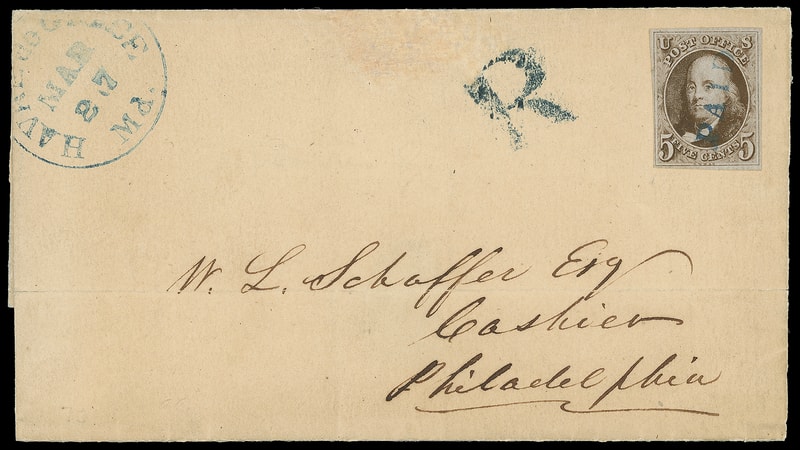 HAVRE de GRACE Md.
MAR
27
R
U S
POST OFFICE
PAID
5 FIVE CENTS 5
W. L. Schaffer Esq
Cashier
Philadelphia